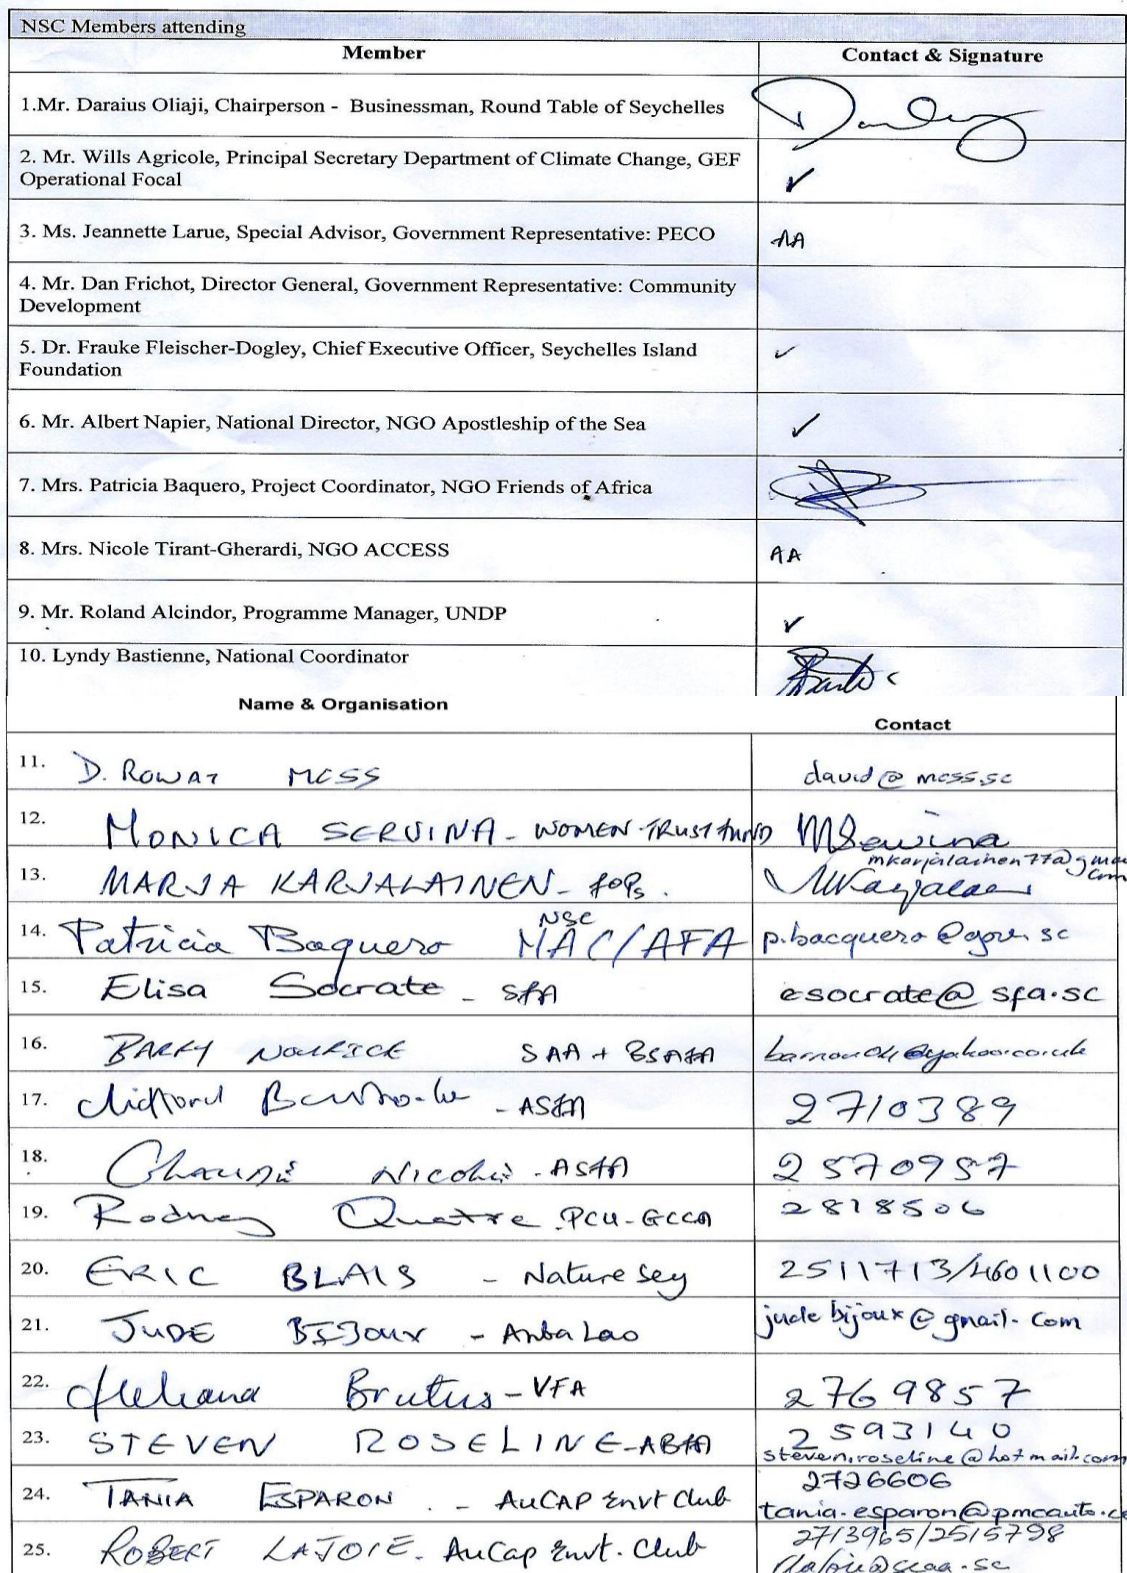 NSC Members attending
Member
Contact & Signature
1.Mr. Daraius Oliaji, Chairperson - Businessman, Round Table of Seychelles
2. Mr. Wills Agricole, Principal Secretary Department of Climate Change, GEF
Operational Focal
✓
3. Ms. Jeannette Larue, Special Advisor, Government Representative: PECO
AA
4. Mr. Dan Frichot, Director General, Government Representative: Community
Development
5. Dr. Frauke Fleischer-Dogley, Chief Executive Officer, Seychelles Island
Foundation
✓
6. Mr. Albert Napier, National Director, NGO Apostleship of the Sea
✓
7. Mrs. Patricia Baquero, Project Coordinator, NGO Friends of Africa
8. Mrs. Nicole Tirant-Gherardi, NGO ACCESS
AA
9. Mr. Roland Alcindor, Programme Manager, UNDP
✓
10. Lyndy Bastienne, National Coordinator
Name & Organisation
Contact
11. D. ROWAT MCSS
david@mcss.sc
12. MONICA SERVINA - WOMEN TRUST FUND
MServina
13. MARJA KARJALAINEN -
mkarjalainen77@gmai
com
14. Patricia Baquero NSC MAC/AFA
p.bacquero@gov.sc
15. Elisa Socrate - SFA
esocrate@sfa.sc
16. BARRY NOURICE SAA +
17. - ASFA
2710389
18. Nicole - ASFA
2570957
19. Rodney Quatre PCU-GCCA
2818506
20. ERIC BLAIS - Nature Sey
2511713/4601100
21. JUDE BIJOUX - Anba Lao
jude bijoux@gmail.com
22. Brutus - VFA
2769857
23. STEVEN ROSELINE - ABFA
2593140
steven.roseline@hotmail.com
24. TANIA ESPARON. - AUCAP Envt Club
2726606
tania.esparon@pmcauto.c
25. ROBERT LAJOIE. AuCap Envt. Club
2713965/2515798